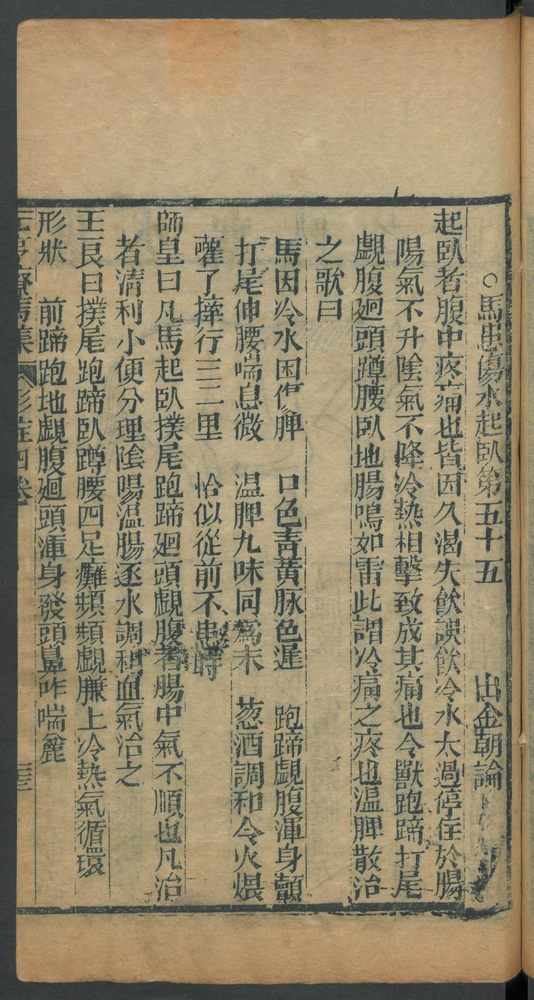 ○馬患傷水起臥第五十五 出金朝論
起臥者腹中疼痛也皆因久渴失飲誤飲冷水太過停在於腸
陽氣不升陰氣不降冷熱相擊致成其痛也令獸跑蹄打尾
覷腹廻頭蹲腰臥地腸鳴如雷此謂冷痛之疼也溫脾散治
之歌曰
馬因冷水困傷脾 口色青黃脉色遲 跑蹄覷腹渾身顫
打尾伸腰喘息微 溫脾九味同為末 葱酒調和令火煨
嚾了擡行三二里 恰似從前不患時
師皇曰凡馬起臥摸尾跑蹄廻頭覷腹者腸中氣不順也凡治
者清利小便分理陰陽溫腸逐水調和血氣治之
王良曰摸尾跑蹄臥蹲腰四足癱頻頻覷廉上冷熱氣循環
形狀 前蹄跑地覷腹廻頭渾身發頭鼻咋喘麄
元亨療馬集 形症四卷 三